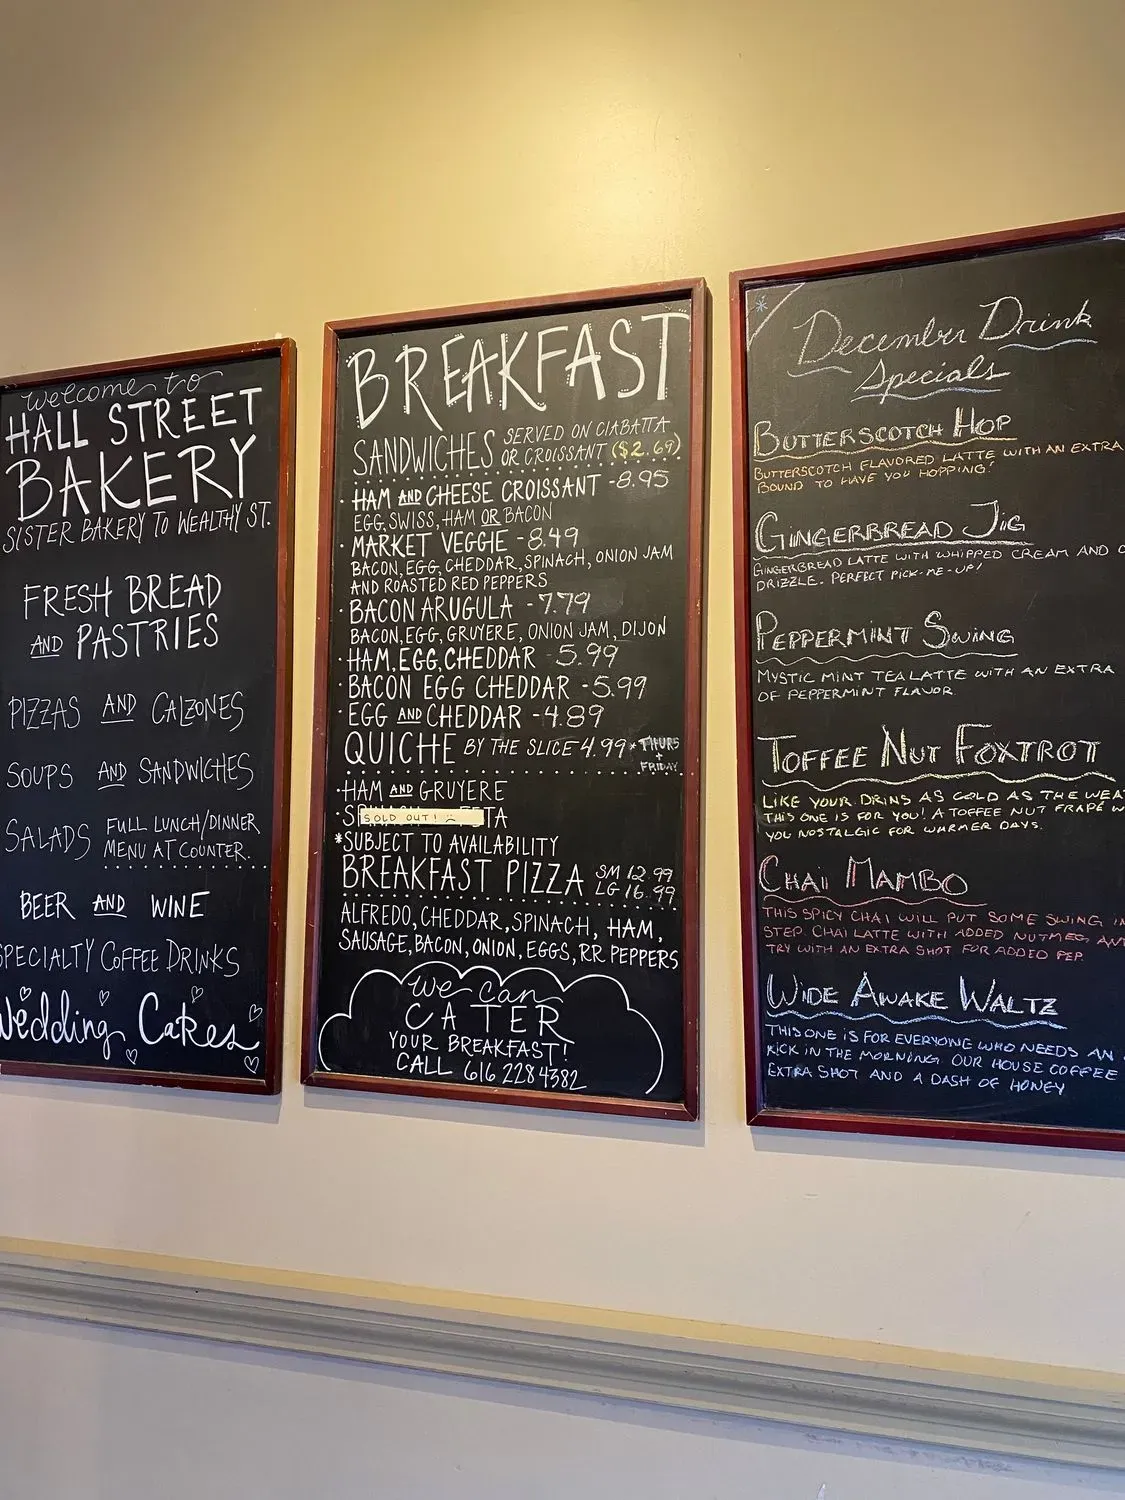 welcome to
HALL STREET
BAKERY
SISTER BAKERY TO WEALTHY ST.
FRESH BREAD
AND PASTRIES
PIZZAS AND CALZONES
SOUPS AND SANDWICHES
SALADS FULL LUNCH/DINNER
MENU AT COUNTER.
BEER AND WINE
SPECIALTY COFFEE DRINKS
Wedding Cakes
BREAKFAST
SANDWICHES SERVED ON CIABATTA
OR CROISSANT ($2.69)
HAM AND CHEESE CROISSANT -8.95
EGG, SWISS, HAM OR BACON
MARKET VEGGIE -8.49
BACON, EGG, CHEDDAR, SPINACH, ONION JAM
AND ROASTED RED PEPPERS
BACON ARUGULA -7.79
BACON, EGG, GRUYERE, ONION JAM, DIJON
HAM, EGG, CHEDDAR 5.99
BACON EGG CHEDDAR -5.99
EGG AND CHEDDAR -4.89
QUICHE BY THE SLICE 4.99 *THURS
+ FRIDAY
HAM AND GRUYERE
SOLD OUT!
*SUBJECT TO AVAILABILITY
BREAKFAST PIZZA SM 12.99
LG 16.99
ALFREDO, CHEDDAR, SPINACH, HAM,
SAUSAGE, BACON, ONION, EGGS, R.R. PEPPERS
We can
CATER
YOUR BREAKFAST!
CALL 616 228 4382
December Drink
Specials
BUTTERSCOTCH HOP
BUTTERSCOTCH FLAVORED LATTE WITH AN EXTRA
BOUND TO HAVE YOU HOPPING!
GINGERBREAD JIG
GINGERBREAD LATTE WITH WHIPPED CREAM AND
DRIZZLE. PERFECT PICK-ME-UP!
PEPPERMINT SWING
MYSTIC MINT TEA LATTE WITH AN EXTRA
OF PEPPERMINT FLAVOR
TOFFEE NUT FOXTROT
LIKE YOUR DRINS AS COLD AS THE
THIS ONE IS FOR YOU! A TOFFEE NUT FRAPÉ
YOU NOSTALGIC FOR WARMER DAYS.
CHAI MAMBO
THIS SPICY CHAI WILL PUT SOME SWING IN
STEP. CHAI LATTE WITH ADDED NUTMEG AND
TRY WITH AN EXTRA SHOT FOR ADDED PEP.
WIDE AWAKE WALTZ
THIS ONE IS FOR EVERYONE WHO NEEDS AN
KICK IN THE MORNING. OUR HOUSE COFFEE
EXTRA SHOT AND A DASH OF HONEY